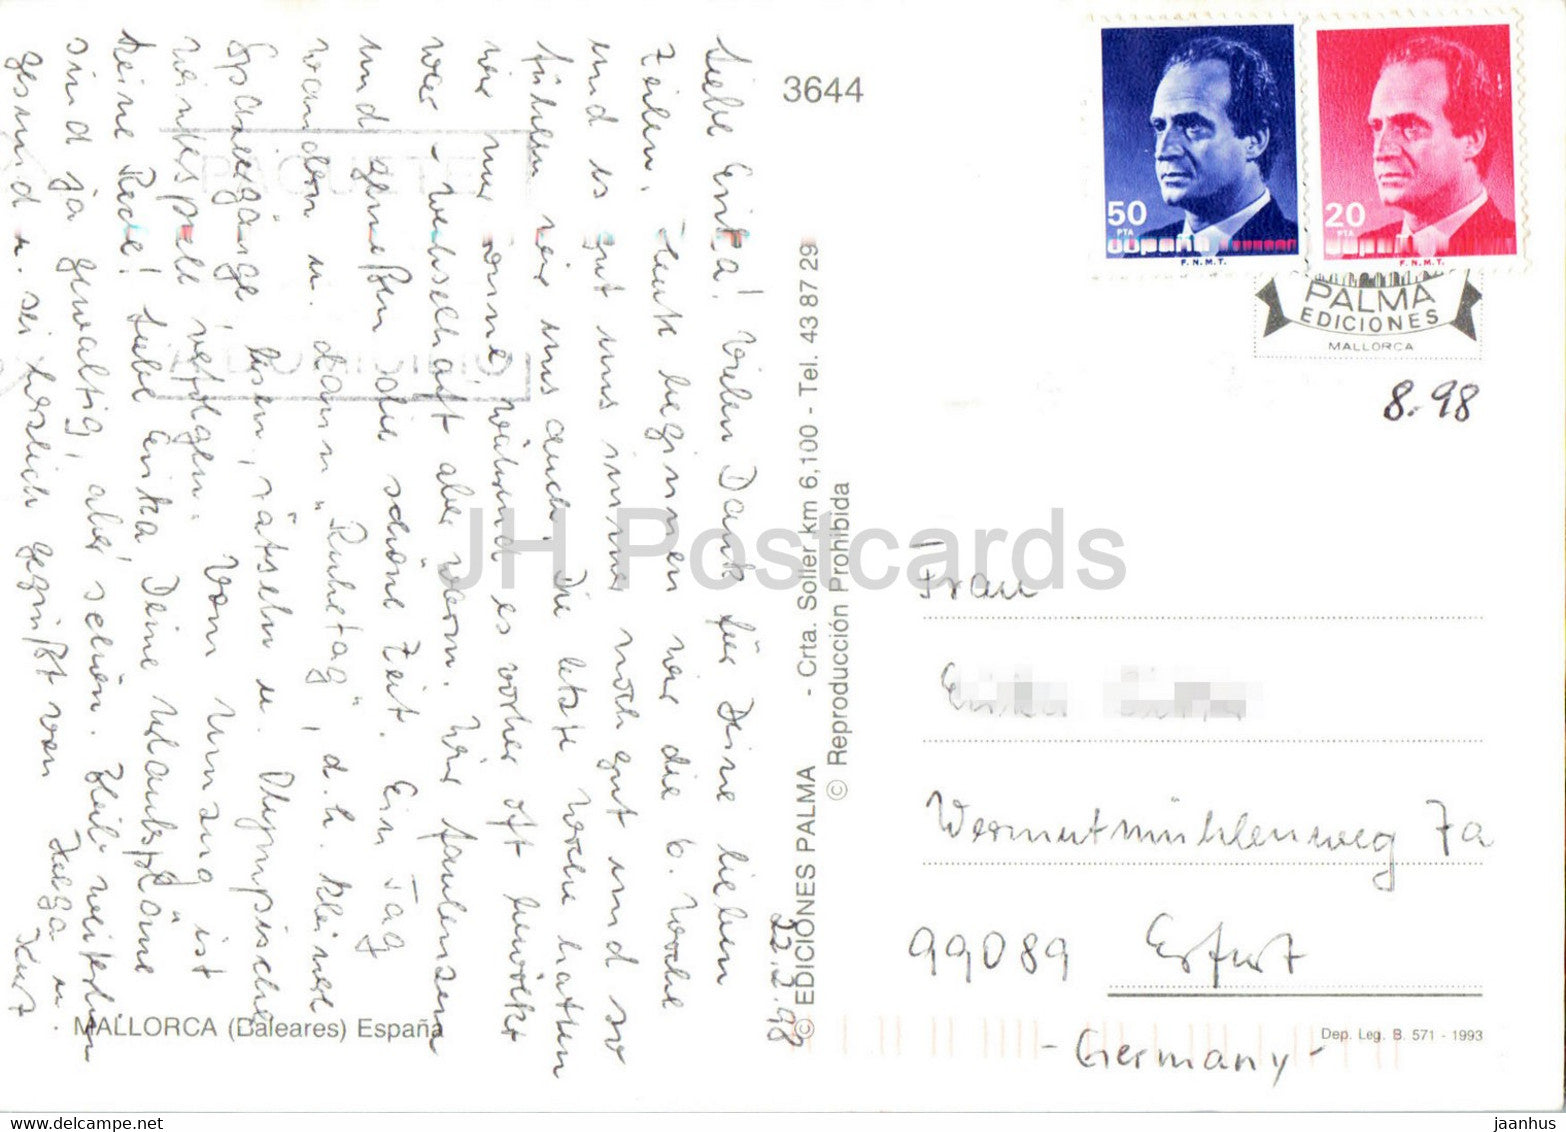 22.2.98
Liebe Erika! Vielen Dank für Deine lieben
Zeilen. Heute beginnen wir die 6. Woche
und es gut uns immer noch gut und so
fühlen wir uns auch. Die letzte Woche hatten
wir nur Sonne, während es vorher oft bewölkt
war - wechselhaft aber warm. Wir faulenzen
und genießen die schöne Zeit. Ein Tag
wandern u. dann „Ruhetag“, d.h. kleine
Spaziergänge, lesen, rätseln u. Olympische
Winterspiele verfolgen. Vom Umzug ist
keine Rede! Liebe Erika, Deine Urlaubspläne
sind ja gewaltig, aber schön. Bleib weiterhin
gesund u. sei herzlich gegrüßt von Helga u.
Kurt
PAQUETE
A DOMICILIO
MALLORCA (Baleares) España
3644
© EDICIONES PALMA - Crta. Soller km 6,100 - Tel. 43 87 29
© Reproducción Prohibida
50
PTA
España
F.N.M.T.
20
PTA
F.N.M.T.
PALMA
EDICIONES
MALLORCA
8.98
JH Postcards
Frau
Erika
Wermutmühlenweg 7a
99089 Erfurt
- Germany -
Dep. Leg. B. 571 - 1993
jaanhus